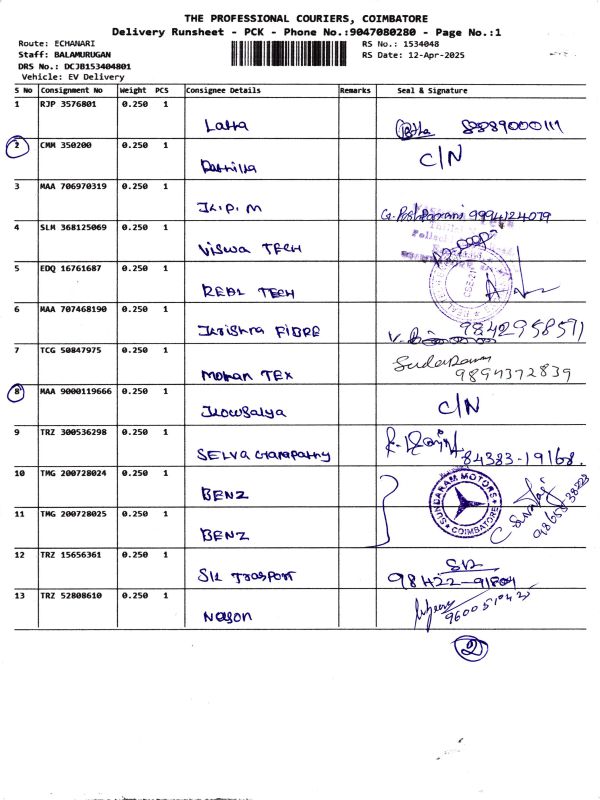 THE PROFESSIONAL COURIERS, COIMBATORE
Delivery Runsheet - PCK - Phone No.:9047080280 - Page No.:1
Route: ECHANARI
Staff: BALAMURUGAN
DRS No.: DCJB153404801
Vehicle: EV Delivery
RS No.: 1534048
RS Date: 12-Apr-2025
S No Consignment No Weight PCS Consignee Details Remarks Seal & Signature
1 RJP 3576801 0.250 1 Latha
2 CMM 350200 0.250 1 C/N
3 MAA 706970319 0.250 1 K.P.M 9994124079
4 SLM 368125069 0.250 1 Viswa TECH
5 EDQ 16761687 0.250 1 REAL TECH
6 MAA 707468190 0.250 1 Krishna FIBRE 9842958571
7 TCG 50847975 0.250 1 Mohan TEX 9894372839
8 MAA 9000119666 0.250 1 Kowsalya C/N
9 TRZ 300536298 0.250 1 SELVA Ganapathy 84383-19168
10 TMG 200728024 0.250 1 BENZ SUNDARAM MOTORS COIMBATORE
11 TMG 200728025 0.250 1 BENZ
12 TRZ 15656361 0.250 1 SK TRASPORT 98422-91804
13 TRZ 52808610 0.250 1 Nelson
2